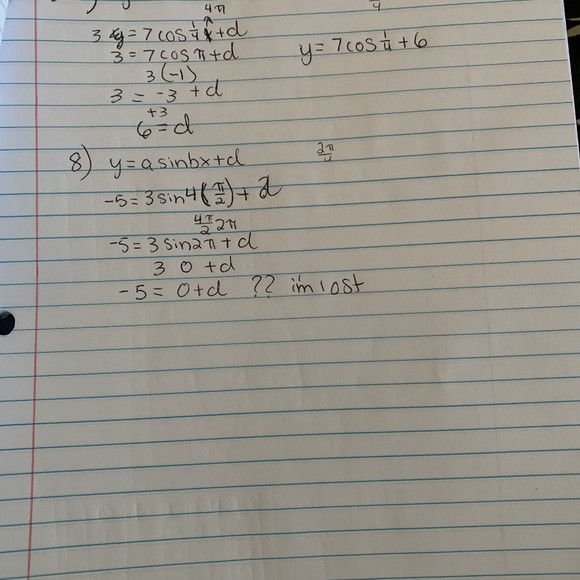 4π
3 y = 7cos ¼ x + d
3 = 7cos π + d
y = 7cos ¼ + 6
3 (-1)
3 = -3 + d
+3
6 = d
8) y = a sin bx + d
2π/4
-5 = 3 sin 4 (π/2) + d
4π/2 2π
-5 = 3 sin 2π + d
3 0 + d
-5 = 0 + d ?? i'm lost